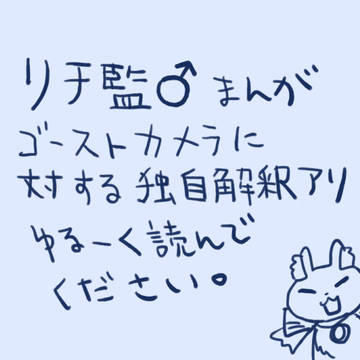 リチ監♂まんが
ゴーストカメラに
対する独自解釈アリ
ゆるーく読んで
ください。